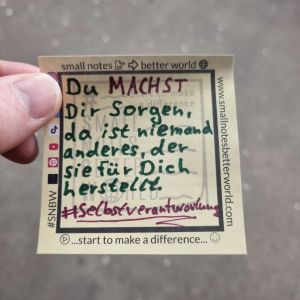 small notes ⇨ better world
Du MACHST
Dir Sorgen,
da ist niemand
anderes, der
sie für Dich
herstellt.
#Selbstverantwortung
...start to make a difference...
#SNBW
www.smallnotesbetterworld.com